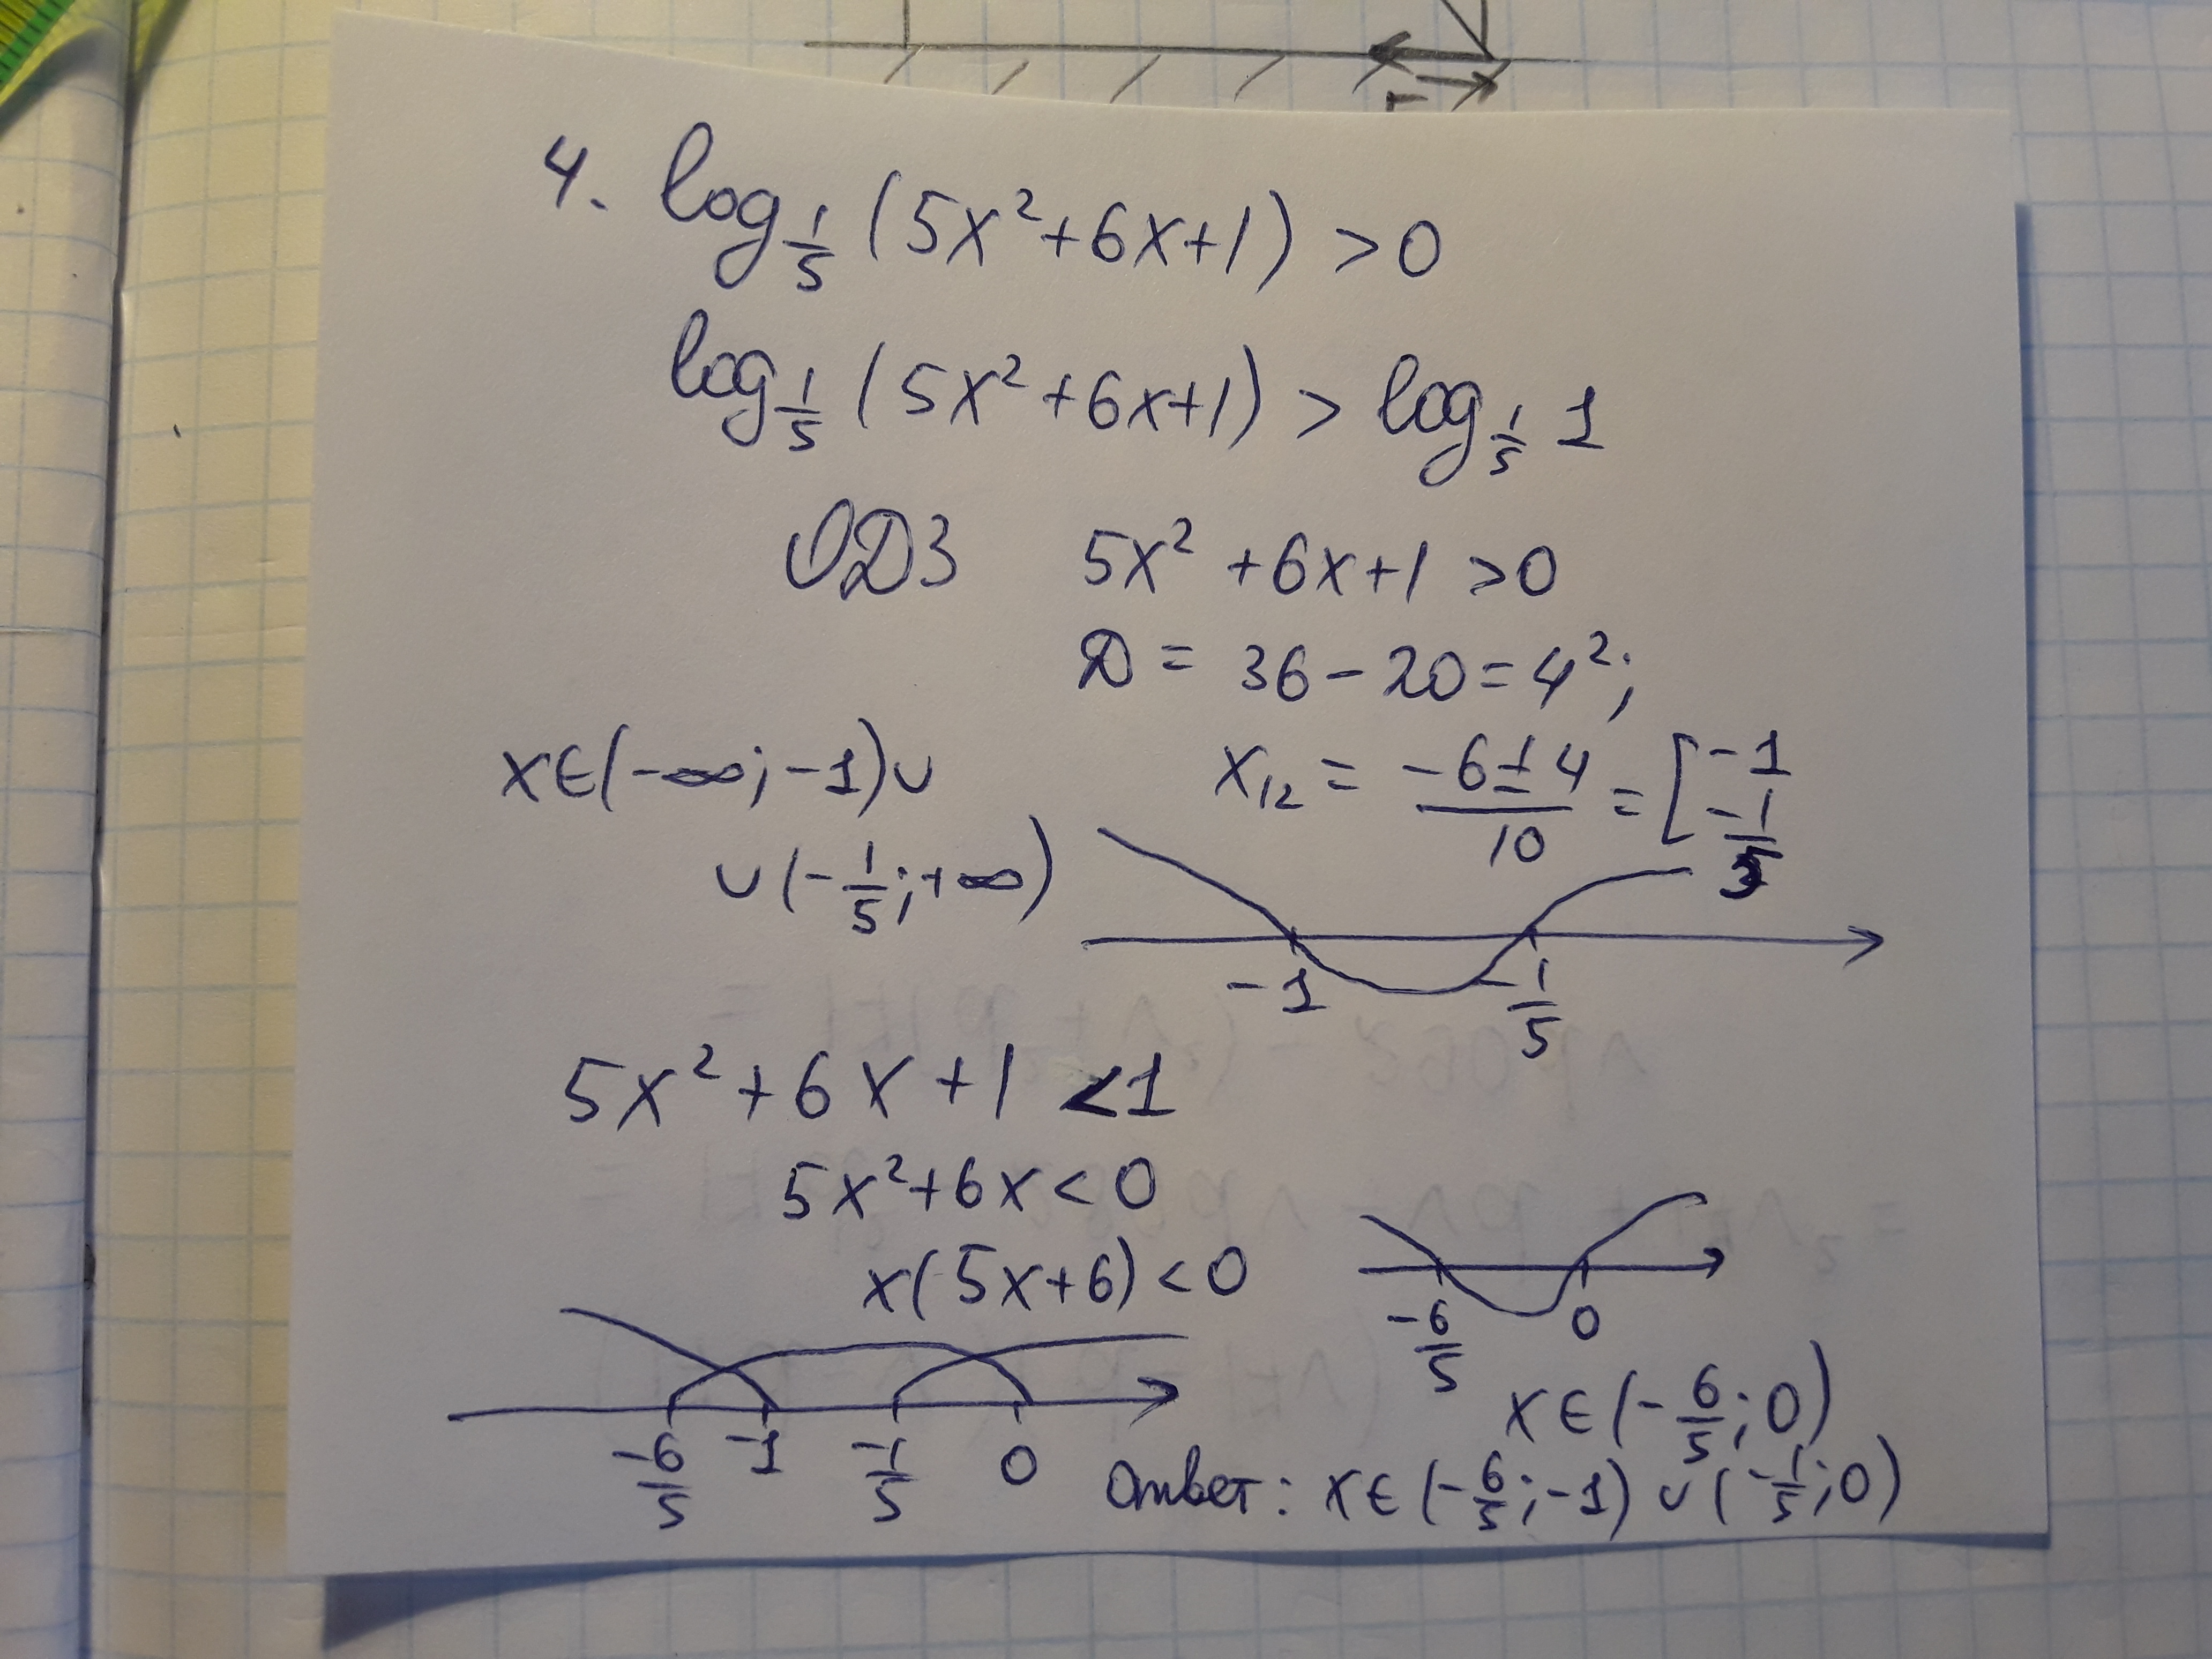 4. log 1/5 (5x²+6x+1) >0
log 1/5 (5x²+6x+1) > log 1/5 1
ОДЗ 5x² +6x+1 >0
D = 36-20=4²;
x12 = -6±4/10 = [-1 -1/5
x∈(-∞;-1)∪
∪(-1/5;+∞)
-1 -1/5
5x²+6x+1 <1
5x²+6x<0
x(5x+6)<0
-6/5 0
x∈(-6/5;0)
-6/5 -1 -1/5 0
Ответ: x∈(-6/5;-1)∪(-1/5;0)